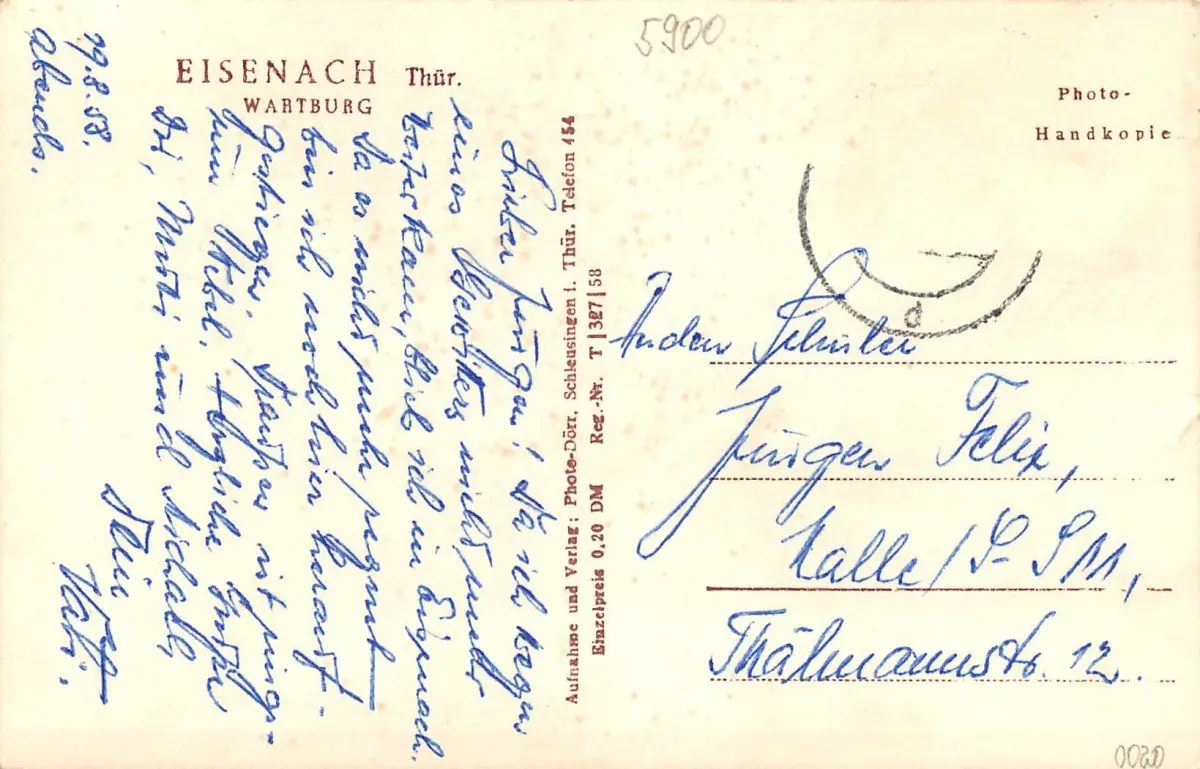 5900
EISENACH Thür.
WARTBURG
Photo-
Handkopie
19.8.58.
abends.
Lieber Jürgen! Da ich wegen
eines Gewitters nicht mehr
weiter kam, blieb ich in Eisenach.
Da es nicht mehr regnet
bin ich noch hier herauf-
gestiegen. Draußen ist rings-
um Nebel. Herzliche Grüße
Dir, Mutti und
Dein
Vati.
Aufnahme und Verlag: Photo-Dörr, Schleusingen i. Thür. Telefon 454
Einzelpreis 0,20 DM Reg.-Nr. T|327|58
d
An den Schüler
Jürgen Felix,
Halle/S
Thälmannstr. 12.
0020